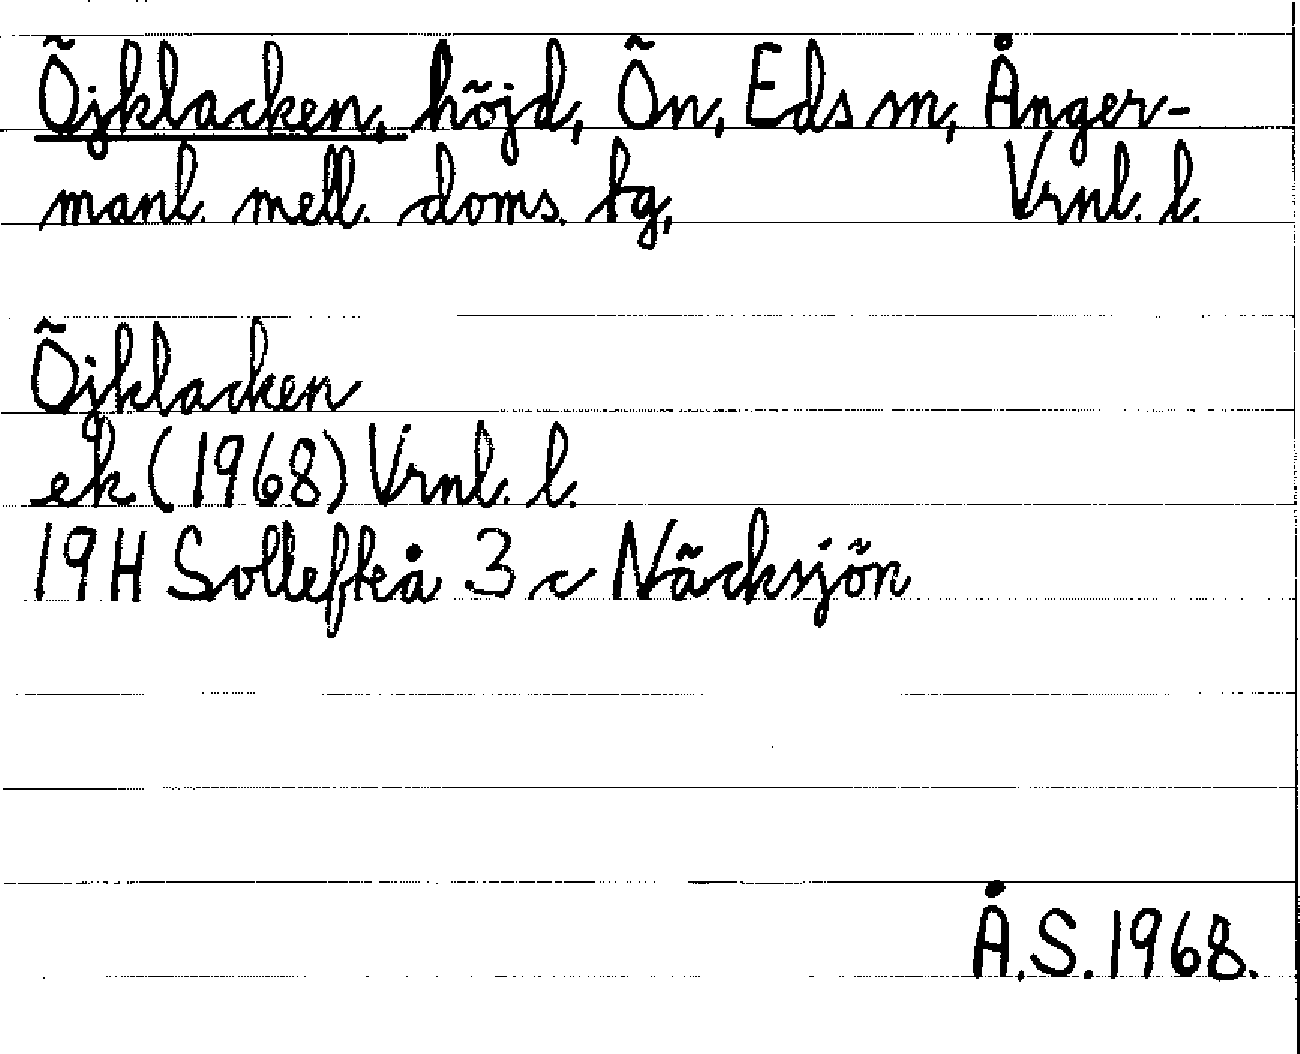 Öjklacken, höjd, Ön, Eds sn, Ånger-
manl. mell. doms. tg, Vrnl. l.
Öjklacken
ek (1968) Vrnl. l.
19H Sollefteå 3 c Näcksjön
Å.S. 1968.